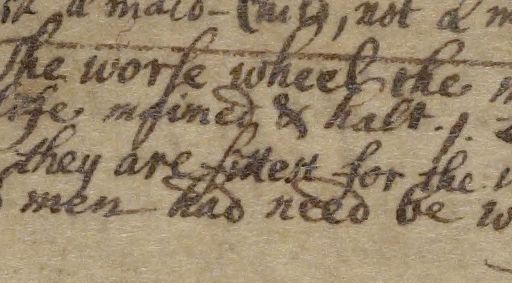 a maid-
not a
The worse wheel the
maimed & halt.
they are fittest for the
men had need be